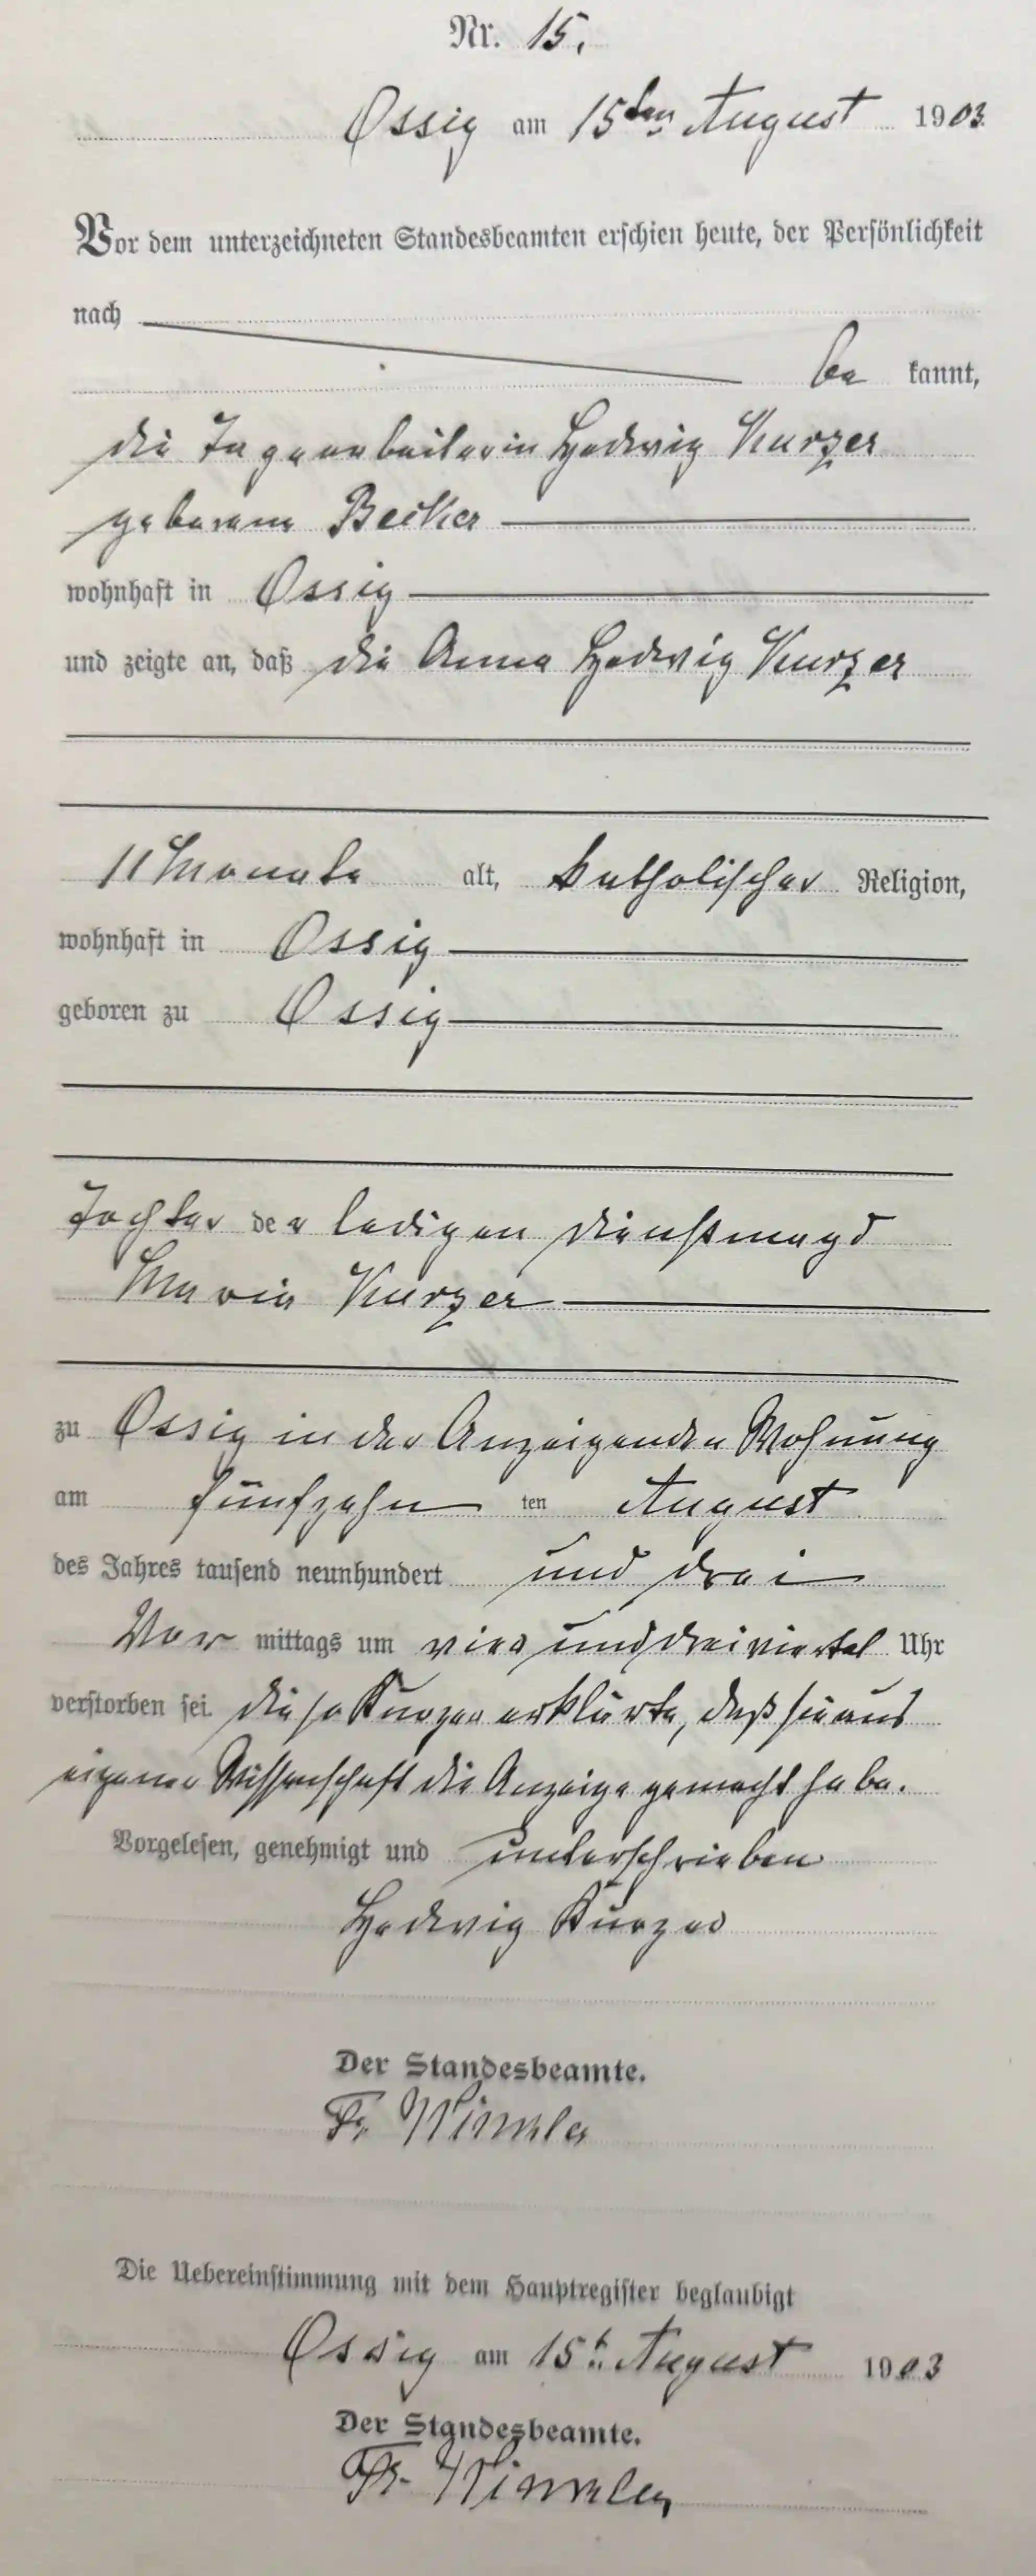 Nr. 15.
Ossig am 15ten August 1903.
Vor dem unterzeichneten Standesbeamten erschien heute, der Persönlichkeit
nach
be kannt,
die Tagearbeiterin Hedwig Kurzer
geborene Becker
wohnhaft in Ossig
und zeigte an, daß die Anna Hedwig Kurzer
11 Monate alt, katholischer Religion,
wohnhaft in Ossig
geboren zu Ossig
Tochter der ledigen Dienstmagd
Maria Kurzer
zu Ossig in der Anzeigenden Wohnung
am fünfzehn ten August
des Jahres tausend neunhundert und drei
Vor mittags um vier und dreiviertel Uhr
verstorben sei. Diese Kurzer erklärte, daß sie aus
eigener Wissenschaft die Anzeige gemacht habe.
Vorgelesen, genehmigt und unterschrieben
Hedwig Kurzer
Der Standesbeamte.
Fr. Winkler
Die Uebereinstimmung mit dem Hauptregister beglaubigt
Ossig am 15t. August 1903
Der Standesbeamte.
Fr. Winkler